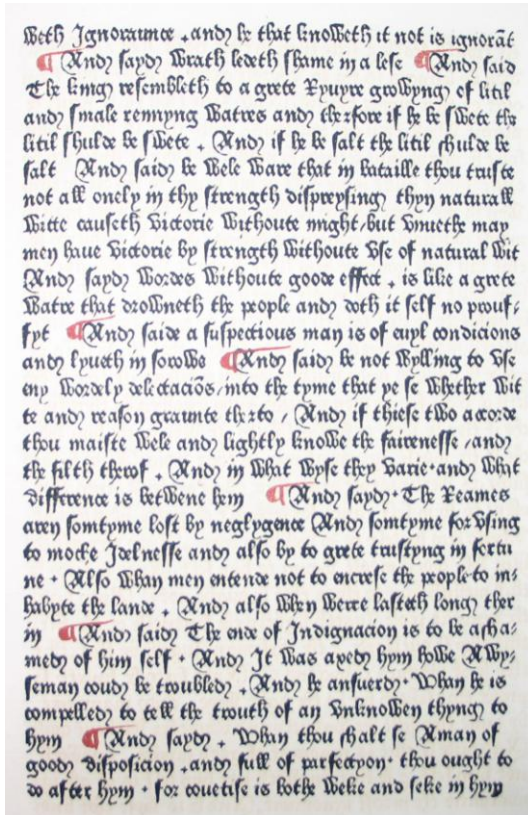 weth Ignoraunce . and he that knoweth it not is ignorāt
¶ And sayd wrath ledeth shame in a lese ¶ And said
The king resembleth to a grete Ryuyre growyng of litil
and smale rennyng watres and therfore if he be swete the
litil shulde be swete . And if he be salt the litil shulde be
salt And said be wele ware that in bataille thou truste
not all onely in thy strength dispreysing thyn naturall
witte causeth victorie withoute might / but vnnethe may
men haue victorie by strength withoute vse of natural wit
And sayd wordes withoute goode effect . is like a grete
watre that drowneth the people and doth it self no prouf⸗
fyt ¶ And saide a suspectious man is of euyl condicions
and lyueth in sorowe ¶ And said be not wylling to vse
eny wordely delectaciōs / into the tyme that ye se whether wit
te and reason graunte therto / And if thiese two acorde
thou maiste wele and lightly knowe the fairenesse / and
the filth therof . And in what wyse they varie · and what
difference is betwene hem ¶ And sayd · The Reames
aren somtyme lost by neglygence And somtyme for vsing
to moche Idelnesse and also by to grete trustyng in fortu
ne · Also whan men entende not to encrese the people to in⸗
habyte the lande . And also when werre lasteth long ther
in ¶ And said The ende of Indignacion is to be asha⸗
med of him self · And It was axed hym howe A wy⸗
seman coud be troubled . And he ansuerd · whan he is
compelled to tell the trouth of an vnknowen thyng to
hym ¶ And sayd . whan thou shalt se A man of
good disposicion . and full of parfectyon · thou ought to
do after hym · for couetise is bothe weke and seke in hym